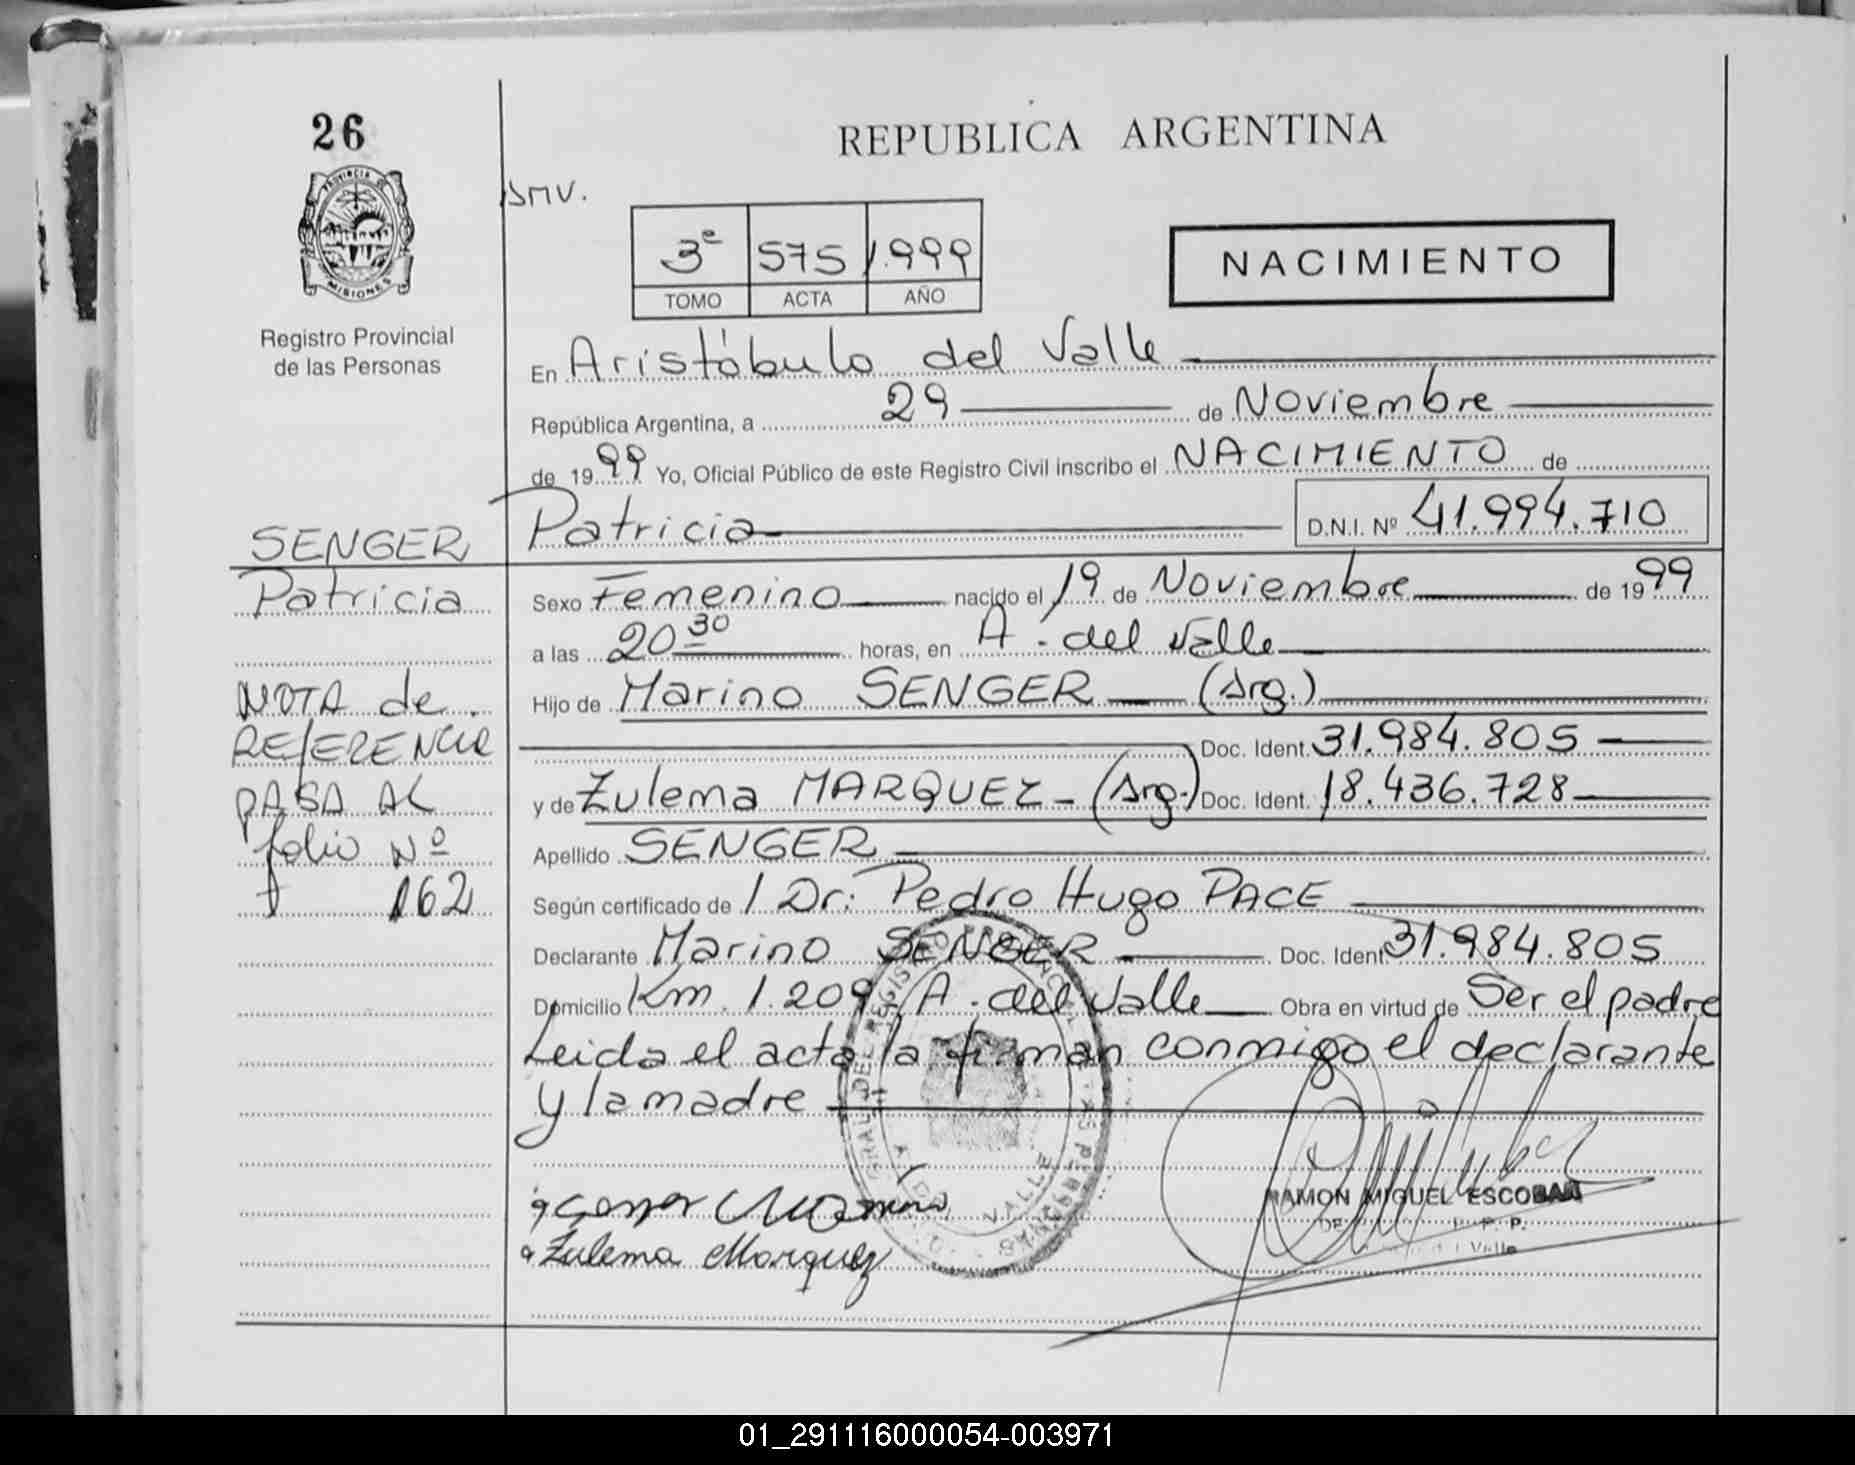 26
PROVINCIA DE
MISIONES
Registro Provincial
de las Personas
REPUBLICA ARGENTINA
3º 575 1.999
TOMO ACTA AÑO
NACIMIENTO
En Aristóbulo del Valle
República Argentina, a 29 de Noviembre
de 1999 Yo, Oficial Público de este Registro Civil inscribo el NACIMIENTO de
Patricia D.N.I. Nº 41.994.710
Sexo Femenino nacido el 19 de Noviembre de 1999
a las 20 30 horas, en A. del Valle
Hijo de Marino SENGER (Arg.)
Doc. Ident. 31.984.805
y de Zulema MARQUEZ - (Arg.) Doc. Ident. 18.436.728
Apellido SENGER
Según certificado de / Dr: Pedro Hugo PACE
Declarante Marino SENGER Doc. Ident 31.984.805
Domicilio Km. 1.209 A. del Valle Obra en virtud de Ser el padre
Leida el acta la firman conmigo el declarante
y la madre
SENGER
Patricia
NOTA de
REfERENCIA
PASA AL
folio Nº
162
Zulema Marquez
RAMON MIGUEL ESCOBAR
VALLE
01_291116000054-003971